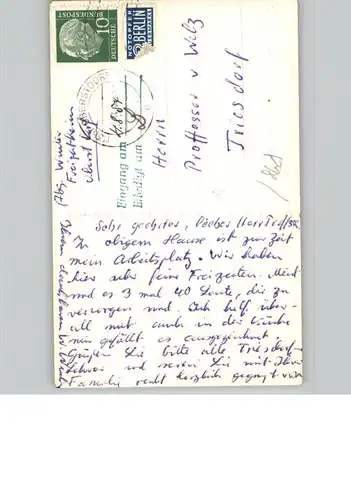 DEUTSCHE
BUNDESPOST
10
NOTOPFER
2 BERLIN
STEUERMARKE
Eingang am 4.8.54
Erledigt am
Herrn
Professor v Wilz
Triesdorf
Abs. Winter
Freizeitheim
Sehr geehrter, lieber Herr Professor
In obigem Hause ist zur Zeit
mein Arbeitsplatz. Wir haben
hier sehr feine Freizeiten. Meist
sind es 3 mal 40 Leute, die zu
versorgen sind. Ich helf über-
all mit auch in der Küche
mir gefällt es ausgezeichnet.
Grüßen Sie bitte alle Triesdorfer
Lehrer und seien Sie mit Ihrer
Familie recht herzlich gegrüßt von
Ihrem dankbaren